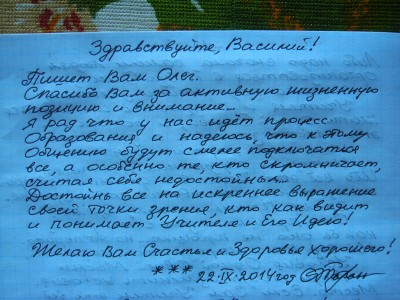 Здравствуйте, Василий!
Пишет Вам Олег.
Спасибо Вам за активную жизненную
позицию и внимание...
Я рад что у нас идёт процесс
Образования и надеюсь, что к этому
Общению будут смелее подключаться
все, а особенно те, кто скромничает,
считая себя недостойным...
Достойны все на искреннее выражение
своей точки зрения, кто как видит
и понимает Учителя и Его Идею!
Желаю Вам Счастья и Здоровья хорошего!
*** 22.IX.2014 год